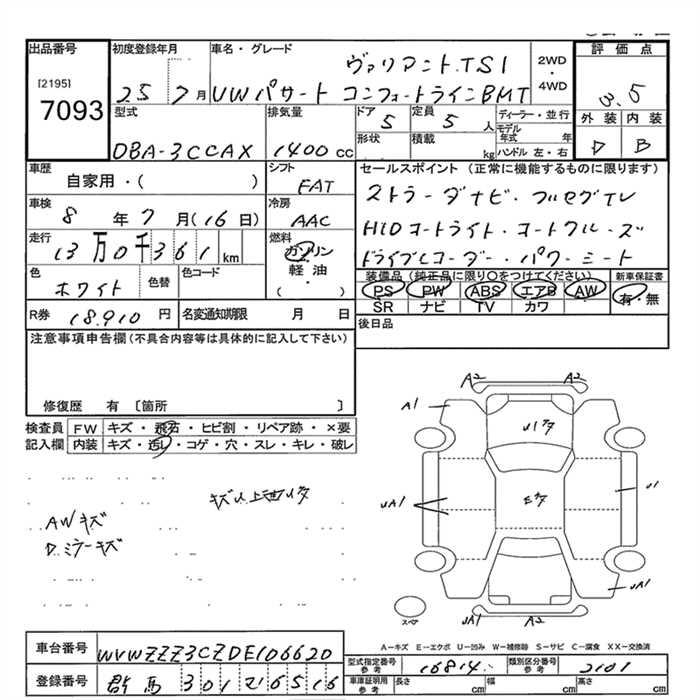 出品番号
[2195]
7093
初度登録年月
25 7月
車名・グレード
ヴァリアント.TSI
VWパサート コンフォートラインBMT
2WD
・
4WD
評価点
3.5
外装 内装
D B
型式
DBA-3CCAX
排気量
1400cc
ドア
5
定員
5人
形状
積載
kg
ディーラー・並行
モデル
年式 年
ハンドル 左・右
車歴
自家用・( )
シフト
FAT
車検
8年7月(16日)
冷房
AAC
走行
13万0千361km
燃料
ガソリン
軽・油
( )
色
ホワイト
色替
色コード
R券 18.910円
名変通知期限 月 日
セールスポイント(正常に機能するものに限ります)
ストラーダナビ・フルセグTV
HIDオートライト・オートクルーズ
ドライブレコーダー・パワーシート
装備品(純正品に限り○をつけてください)
新車保証書
PS PW ABS エアB AW
有・無
SR ナビ TV カワ
後日品
注意事項申告欄(不具合内容等は具体的に記入して下さい)
修復歴 有 [箇所 ]
検査員
記入欄
FW キズ・飛石・ヒビ割・リペア跡・×要
内装 キズ・汚レ・コゲ・穴・スレ・キレ・破レ
AWキズ
D.ミラーキズ
A2 A2
A1
UA1
U1
UA1
UA1 A2
スペア
A―キズ E―エクボ U―凹み W―補修跡 S―サビ C―腐食 XX―交換済
車台番号
WVWZZZ3CZDE106620
登録番号
群馬 301 マ 6516
型式指定番号
参考
16814
類別区分番号
参考
2101
車庫証明用
参考
長さ cm
幅 cm
高さ cm